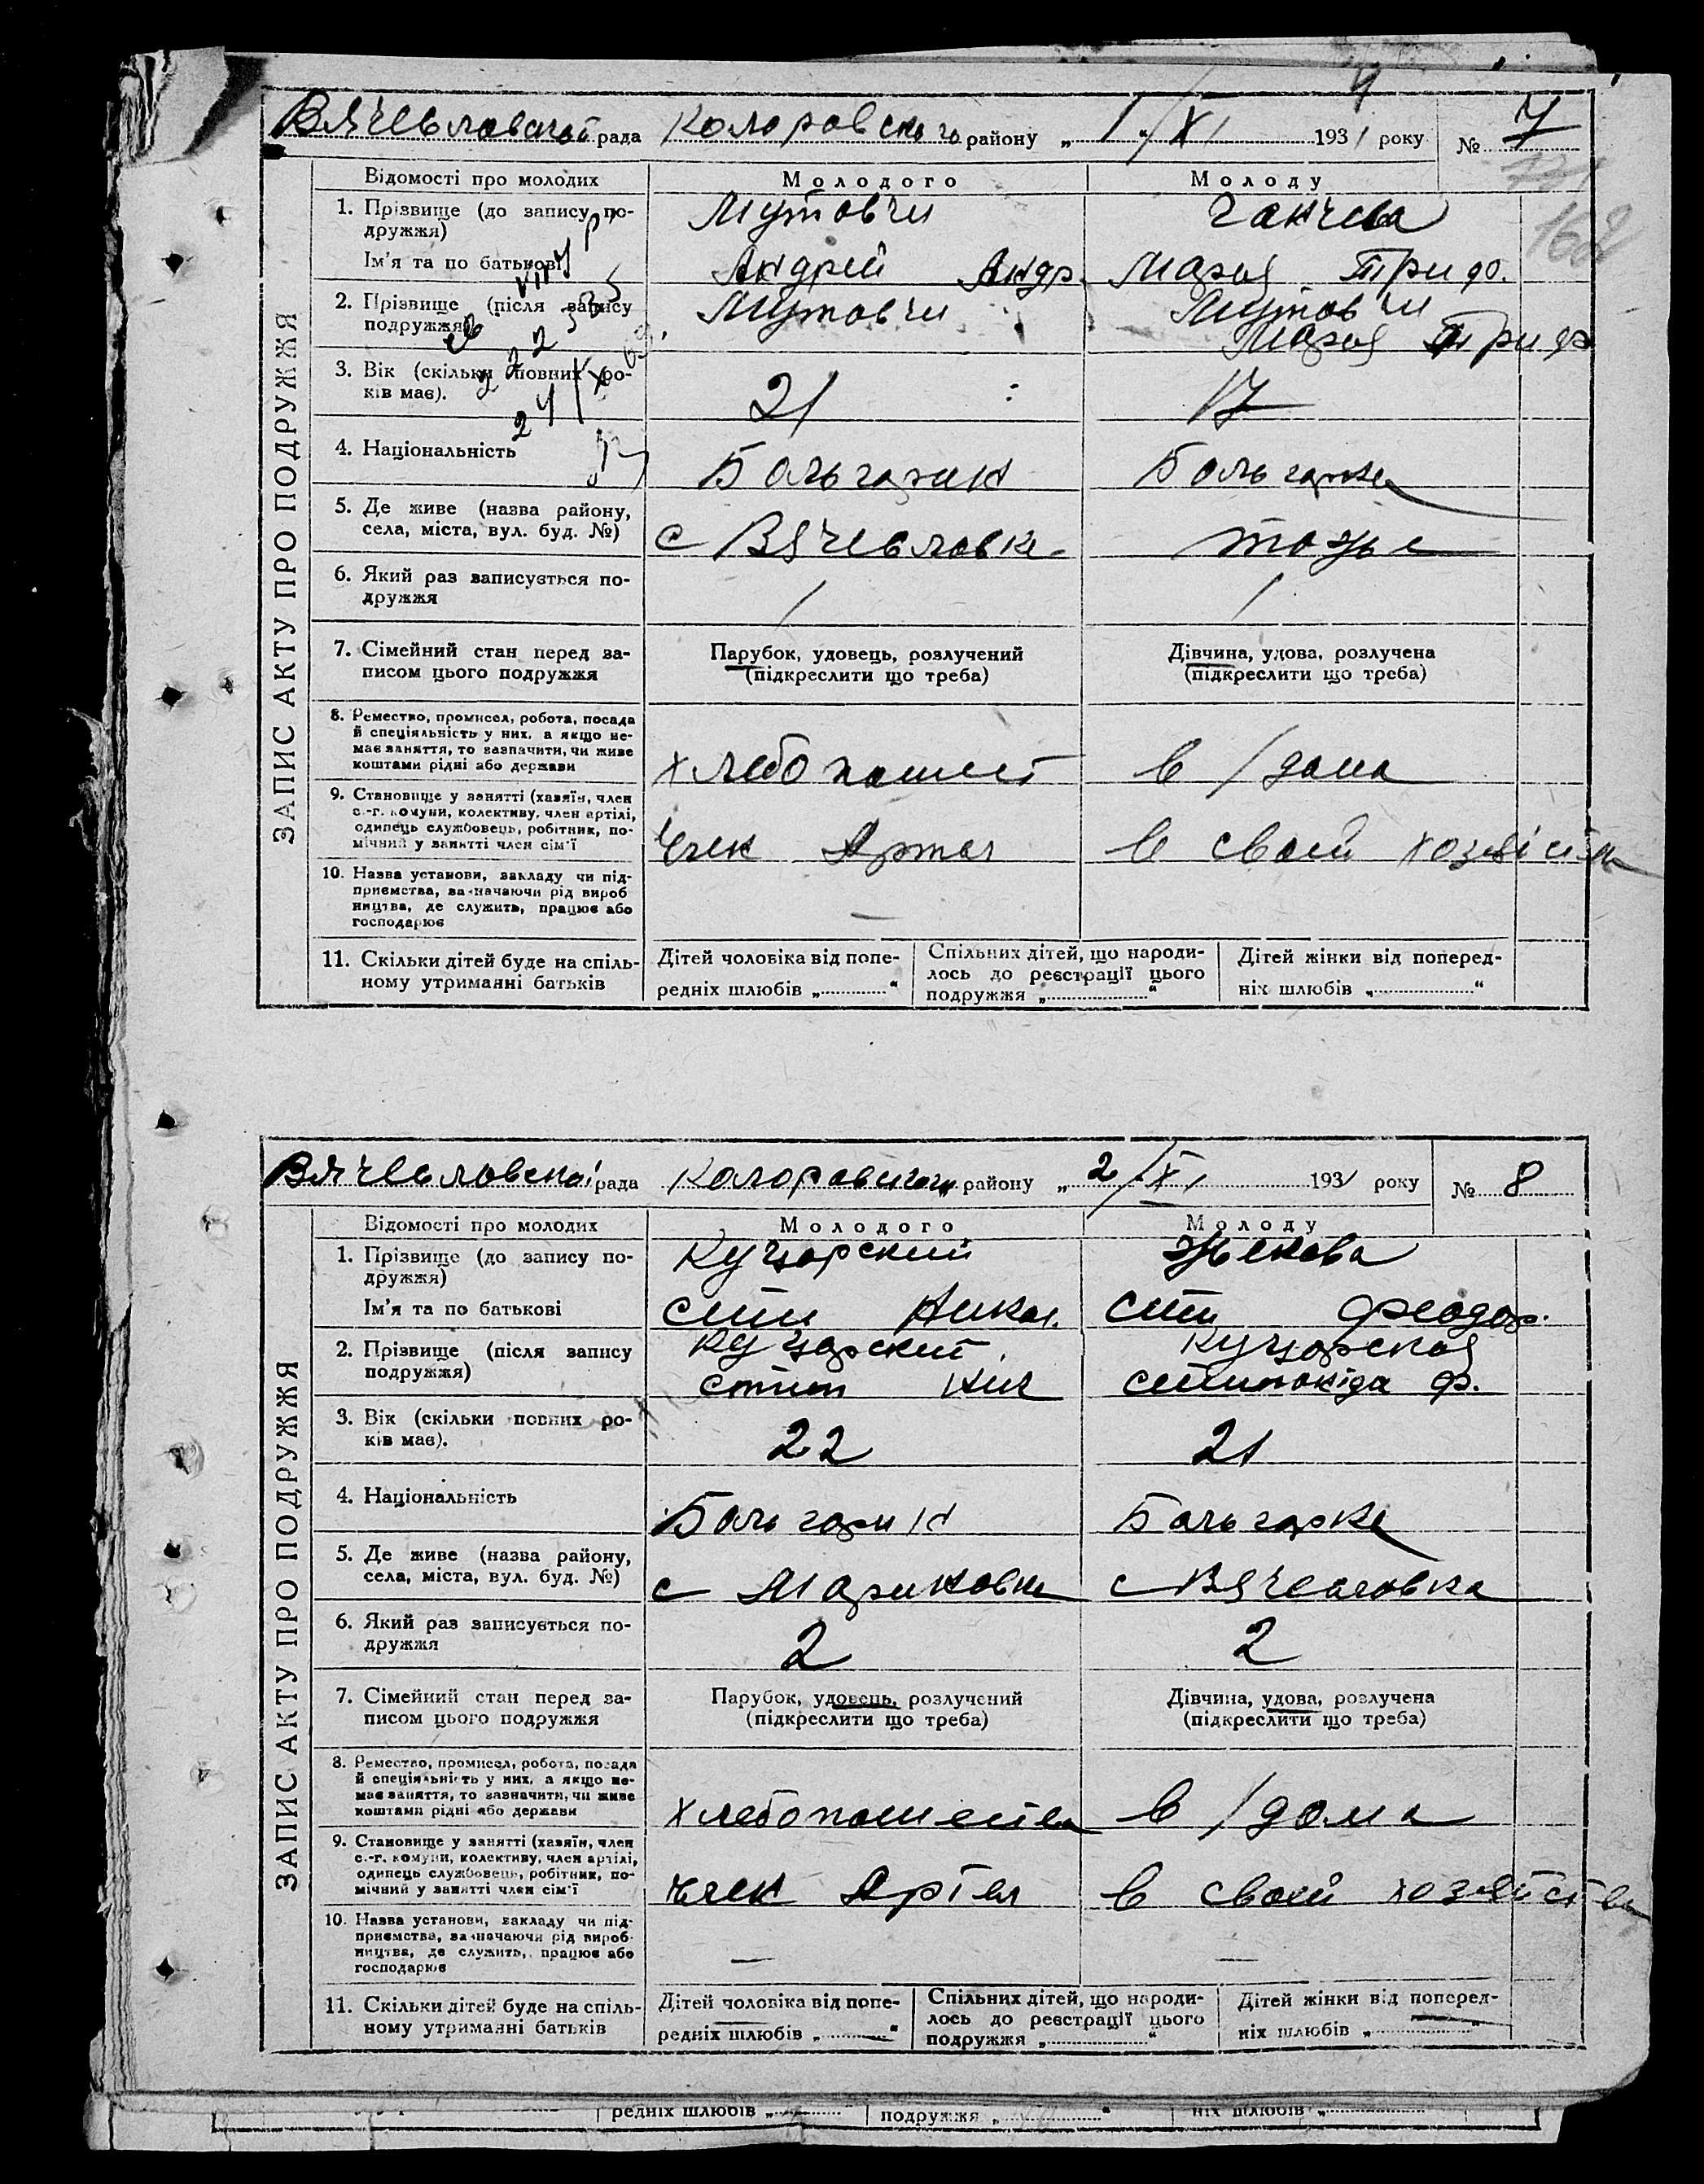 Вячеславской рада Коларовского району „ 1/XI 1931 року № 7
Відомості про молодих
Молодого
Молоду
1. Прізвище (до запису по-
дружжя)
Мутовчи
Ганчева
Ім'я та по батькові
Андрей Андр.
Мария
2. Прізвище (після запису
подружжя)
Мутовчи
Мутовчи
Мария
3. Вік (скільки повних ро-
ків має).
21
17
4. Національність
Больгарин
Больгарка
5. Де живе (назва району,
села, міста, вул. буд. №)
с Вячеславка
тоже
6. Який раз записується по-
дружжя
1
1
7. Сімейний стан перед за-
писом цього подружжя
Парубок, удовець, розлучений
(підкреслити що треба)
Дівчина, удова, розлучена
(підкреслити що треба)
8. Ремество, промисел, робота, посада
й спеціяльність у них, а якщо не-
має заняття, то зазначити, чи живе
коштами рідні або держави
хлебопашест
в/дома
9. Становище у занятті (хазяїн, член
с.-г. комуни, колективу, член артілі,
одинець службовець, робітник, по-
мічний у занятті член сім'ї
Член Артел
в своей хозяйств
10. Назва установи, закладу чи під-
приємства, зазначаючи рід вироб-
ництва, де служить, працює або
господарює
—
11. Скільки дітей буде на спіль-
ному утриманні батьків
Дітей чоловіка від попе-
редніх шлюбів „ “
Спільних дітей, що народи-
лось до реєстрації цього
подружжя „ “
Дітей жінки від поперед-
ніх шлюбів „ “
ЗАПИС АКТУ ПРО ПОДРУЖЖЯ
Вячеславской рада Коларовского району „ 2/XI 1931 року № 8
Відомості про молодих
Молодого
Молоду
1. Прізвище (до запису по-
дружжя)
Кущарский
Жекова
Ім'я та по батькові
Никол.
Феодор.
2. Прізвище (після запису
подружжя)
Кущарский
Кущарская
Ник
Ф.
3. Вік (скільки повних ро-
ків має).
22
21
4. Національність
Больгарин
Больгарка
5. Де живе (назва району,
села, міста, вул. буд. №)
с Мариновка
с Вячеславка
6. Який раз записується по-
дружжя
2
2
7. Сімейний стан перед за-
писом цього подружжя
Парубок, удовець, розлучений
(підкреслити що треба)
Дівчина, удова, розлучена
(підкреслити що треба)
8. Ремество, промисел, робота, посада
й спеціяльність у них, а якщо не-
має заняття, то зазначити, чи живе
коштами рідні або держави
хлебопашества
в/дома
9. Становище у занятті (хазяїн, член
с.-г. комуни, колективу, член артілі,
одинець службовець, робітник, по-
мічний у занятті член сім'ї
Член Артел
в своей хозяйства
10. Назва установи, закладу чи під-
приємства, зазначаючи рід вироб-
ництва, де служить, працює або
господарює
—
—
11. Скільки дітей буде на спіль-
ному утриманні батьків
Дітей чоловіка від попе-
редніх шлюбів „ — “
Спільних дітей, що народи-
лось до реєстрації цього
подружжя „ “
Дітей жінки від поперед-
ніх шлюбів „ “
ЗАПИС АКТУ ПРО ПОДРУЖЖЯ
редніх шлюбів „ “
подружжя „ “
ніх шлюбів „